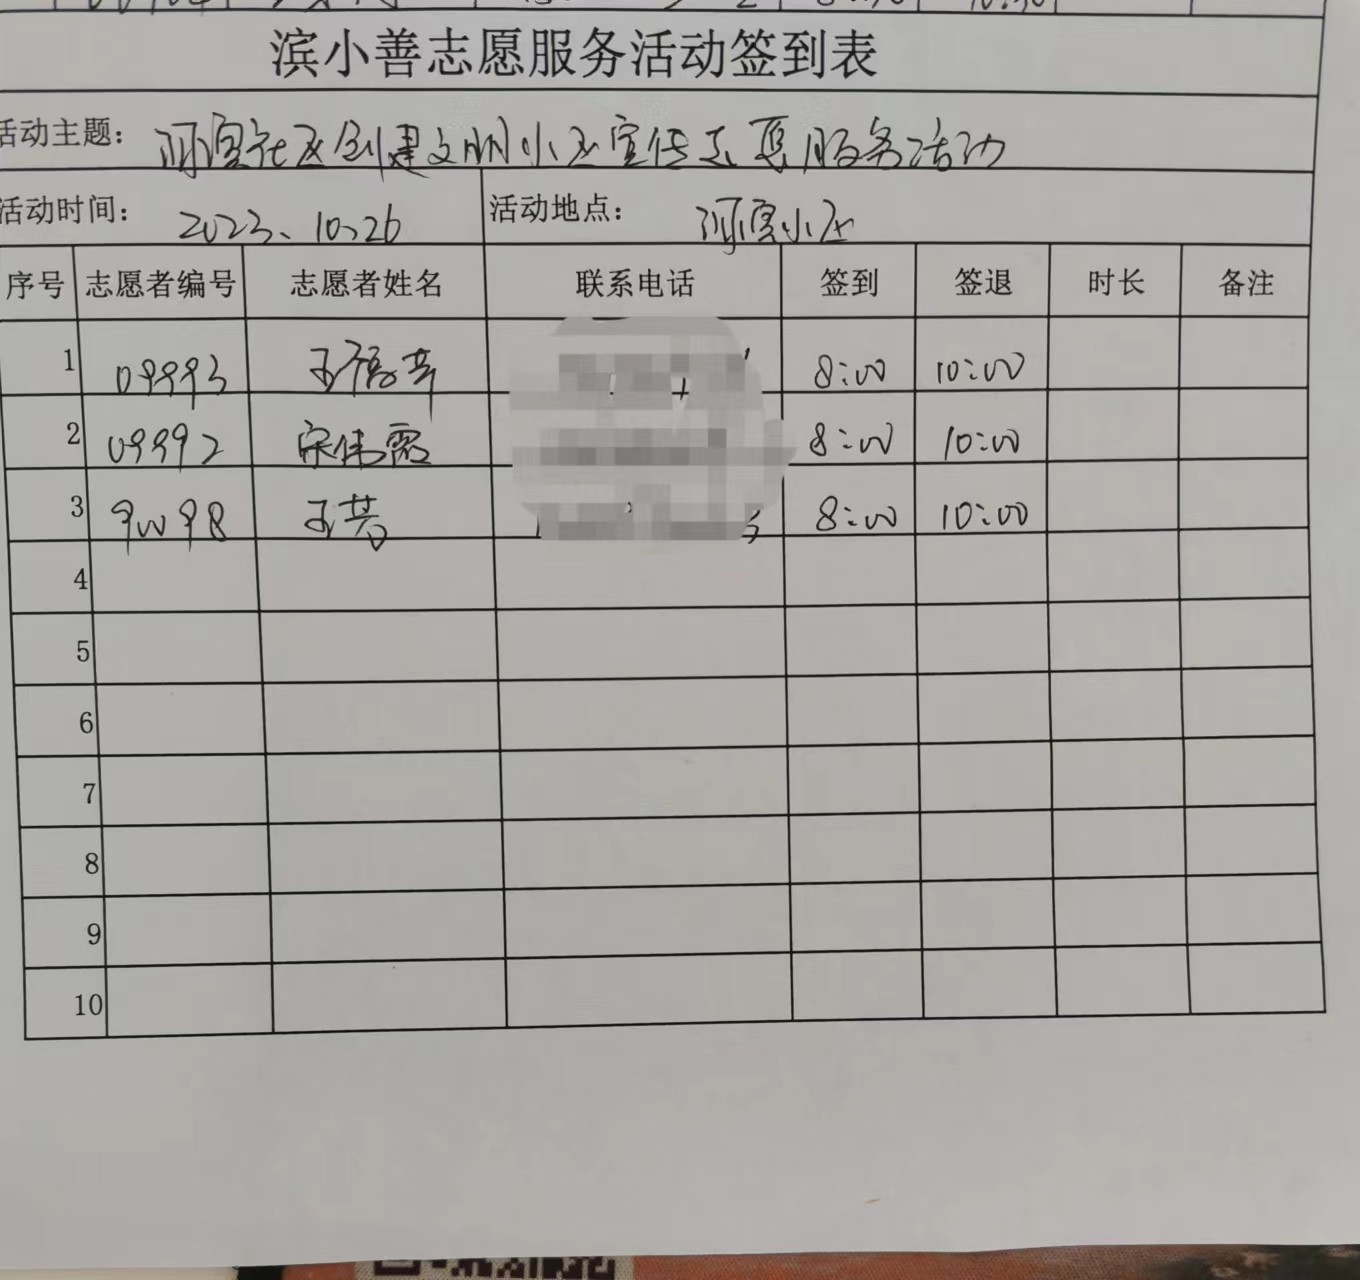 滨小善志愿服务活动签到表
活动主题： 社区创建文明小区宣传志愿服务活动
活动时间： 2023、10、26 活动地点： 小区
序号 志愿者编号 志愿者姓名 联系电话 签到 签退 时长 备注
1 09993 王福芹 8:00 10:00
2 09992 宋伟霞 8:00 10:00
3 90098 王芸 8:00 10:00
4
5
6
7
8
9
10